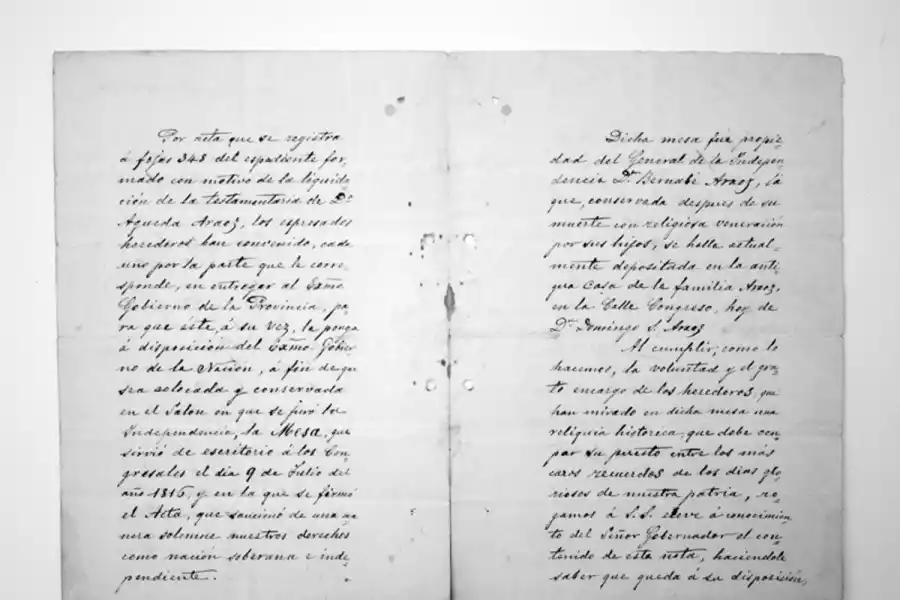 Por acta que se registra
á fojas 343 del espediente for-
mado con motivo de la liquida-
ción de la testamentaria de Dª
Agueda Araoz, los espresados
herederos han convenido, cada
uno por la parte que le corre-
sponde, en entregar al Exmo
Gobierno de la Provincia, pa-
ra que éste, á su vez, la ponga
á disposición del Exmo Gobier-
no de la Nación, á fin de que
sea colocada y conservada
en el Salon en que se juró la
Independencia, la Mesa, que
sirvió de escritorio á los Con-
gresales el dia 9 de Julio del
año 1816, y en la que se firmó
el Acta, que sancionó de una ma-
nera solemne nuestros derechos
como nación soberana e inde-
pendiente.
Dicha mesa fué propie-
dad del General de la Indepen-
dencia Dn Bernabé Araoz, la
que, conservada despues de su
muerte con religiosa veneración
por sus hijos, se halla actual-
mente depositada en la anti-
gua Casa de la familia Araoz,
en la Calle Congreso, hoy de
Dn Domingo S. Araoz
Al cumplir, como lo
hacemos, la voluntad y el gra-
to encargo de los herederos, que
han mirado en dicha mesa una
reliquia historica, que debe ocu-
par su puesto entre los más
caros recuerdos de los dias glo-
riosos de nuestra patria, ro-
gamos á S.S. eleve á conocimien-
to del Señor Gobernador el con-
tenido de esta nota, haciendole
saber que queda á su disposición,